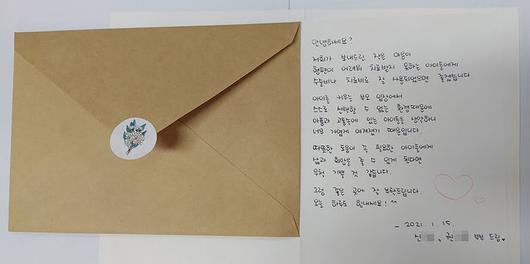 안녕하세요?
저희가 보내드린 작은 마음이
형편이 어려워 치료받지 못하는 아이들에게
수술비나 치료비로 잘 사용되었으면 좋겠습니다.
아이를 키우는 부모 입장에서
스스로 선택할 수 없는 환경때문에
아픔과 고통속에 있는 아이들을 생각하니
너무 가엽게 여겨졌기 때문입니다.
따뜻한 도움이 꼭 필요한 아이들에게
삶과 희망을 줄 수 있게 된다면
무척 기쁠 것 같습니다.
그럼 좋은 곳에 잘 부탁드립니다.
오늘 하루도 힘내세요! ^^
- 2021. 1. 15.
신, 권 부부 드림.♥